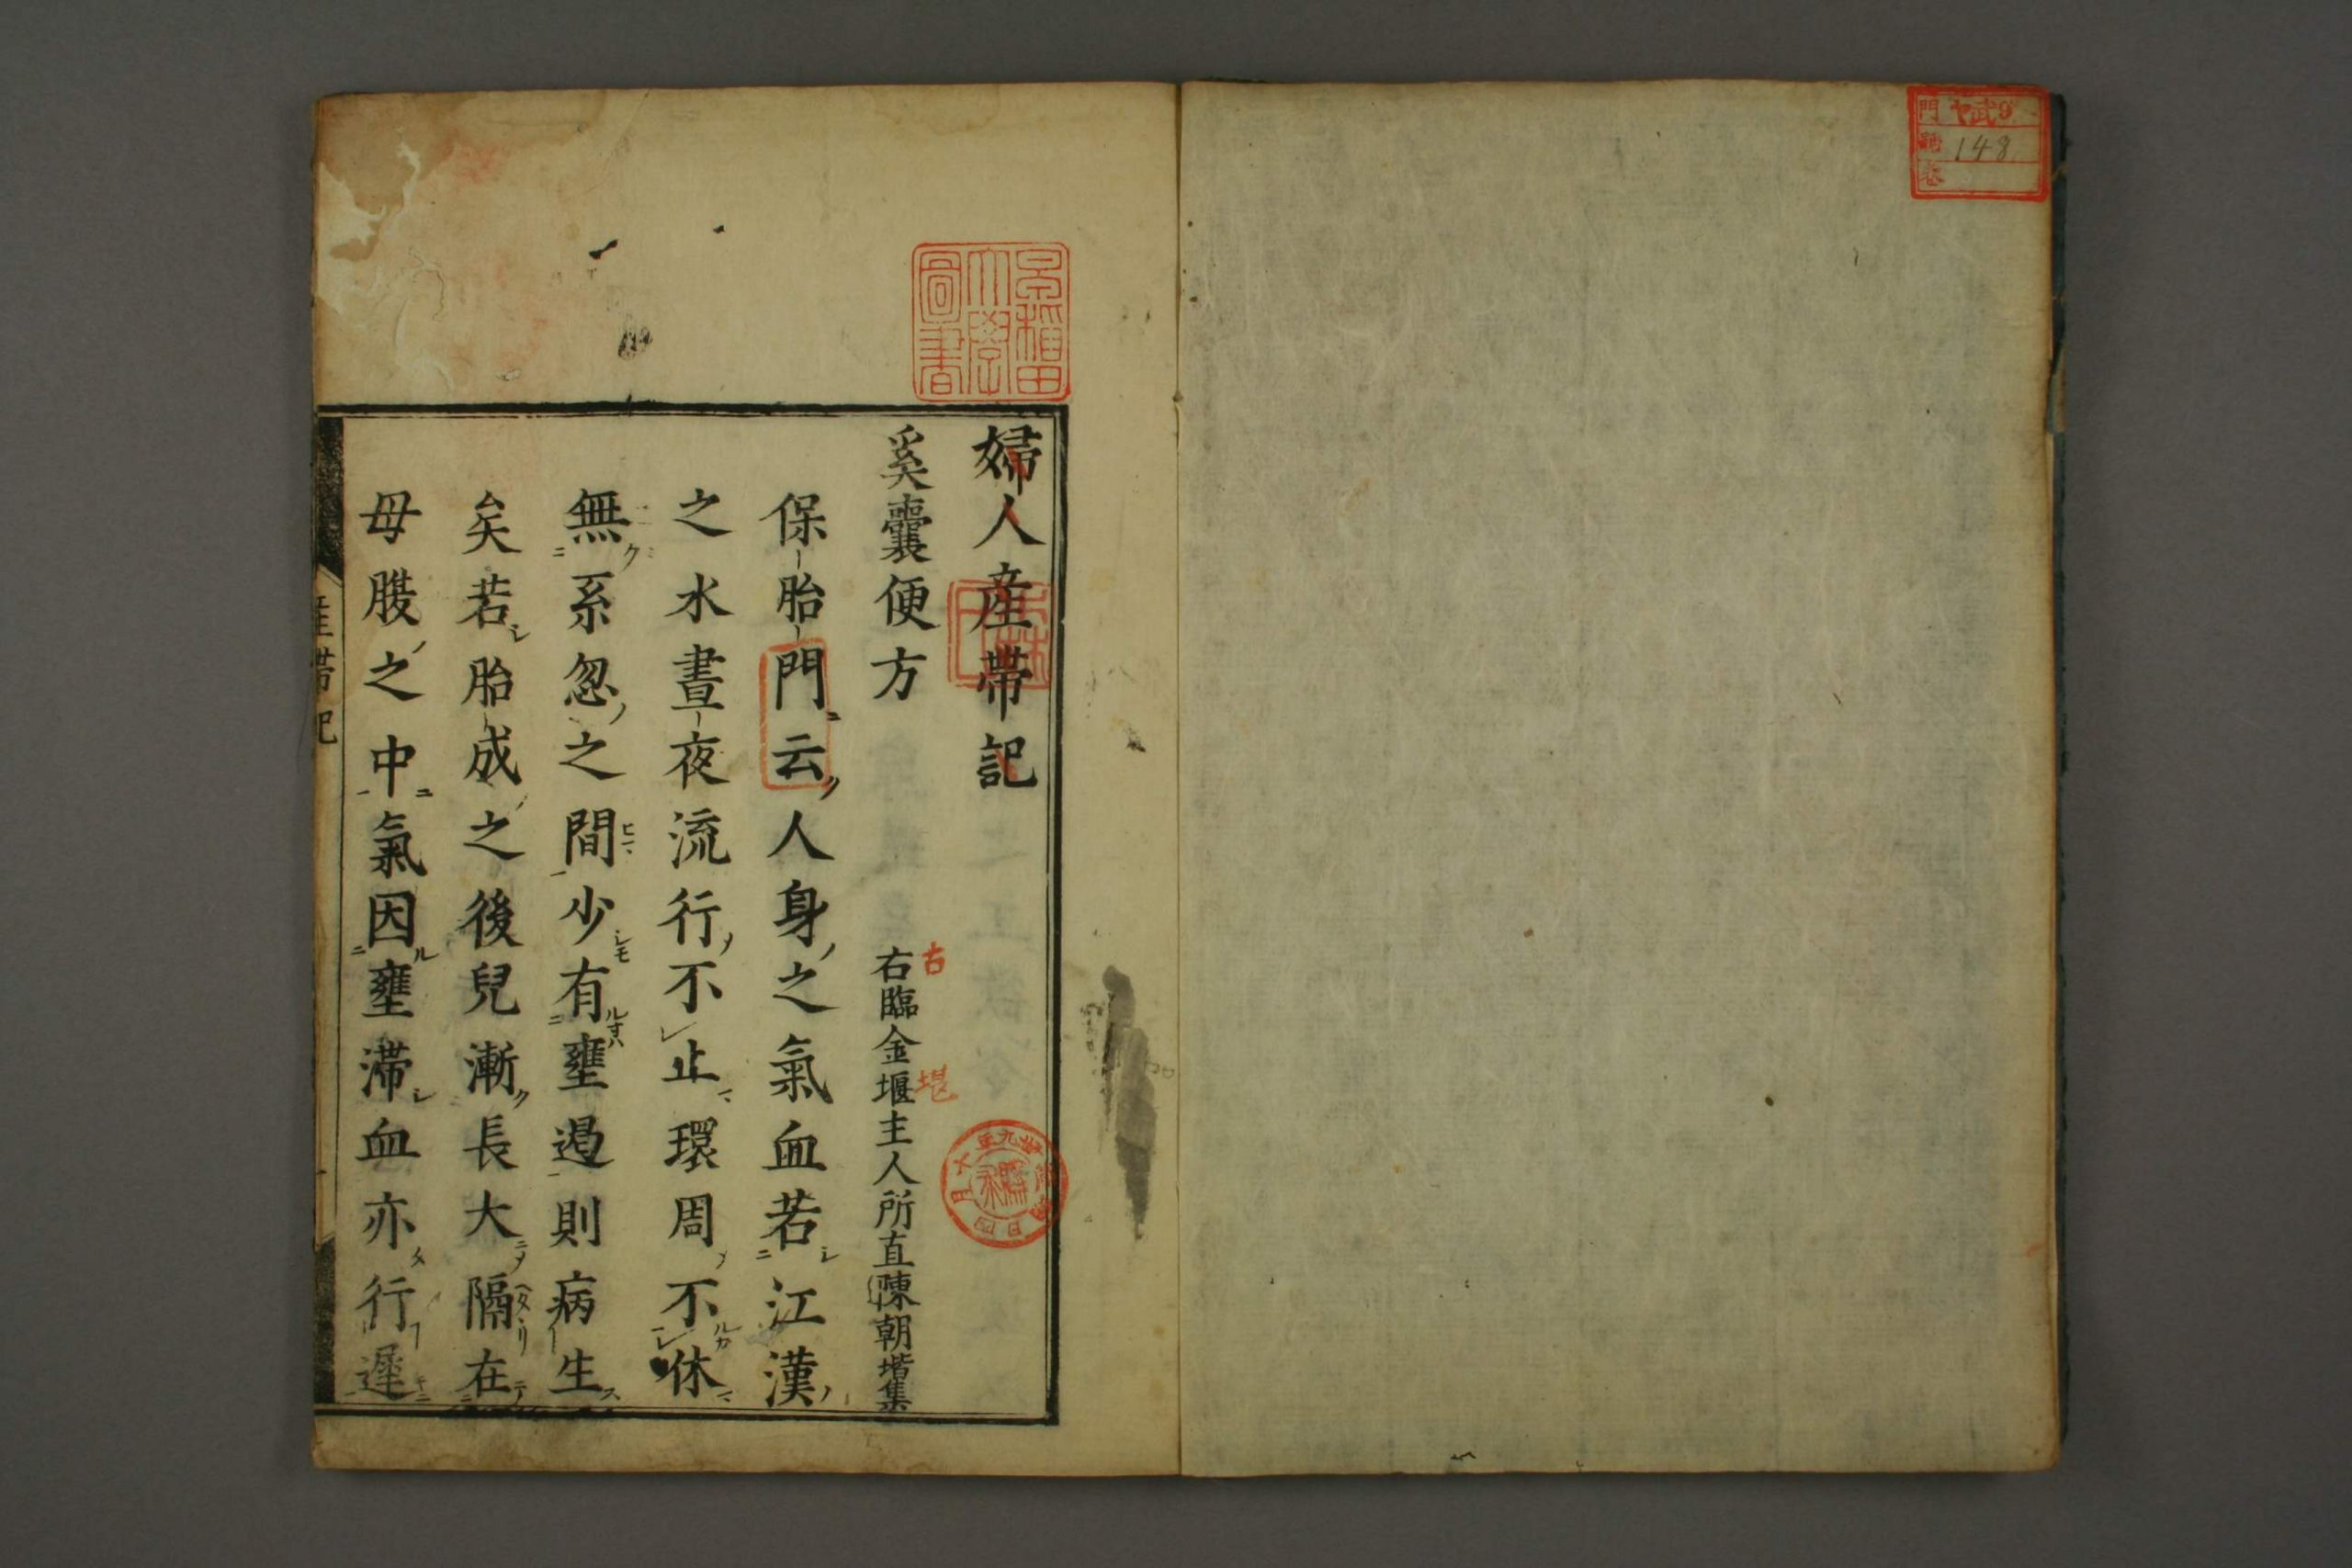 門 ヤ武9
號 148
卷
早稲田大學圖書
婦人産帯記
奚囊便方
右臨金堰主人所直陳朝堦集
古 堪
保胎門云人身之氣血若江漢
之水晝夜流行不止環周不休
無系忽之間少有壅遏則病生
矣若胎成之後兒漸長大隔在
母腹之中氣因壅滞血亦行遲
産帯記
一